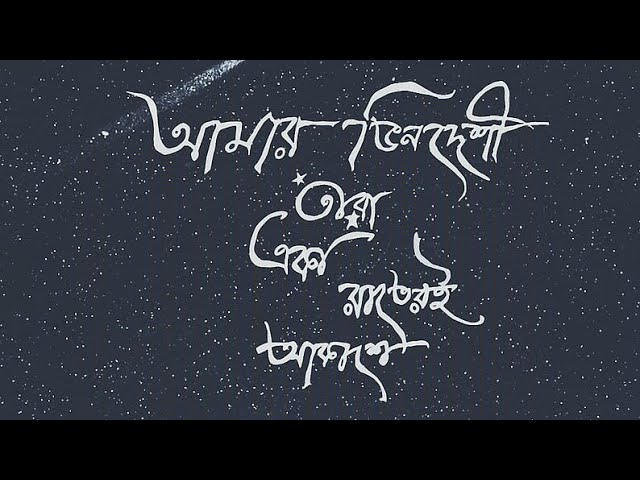 আমার ভিনদেশী
তারা
একা
রাতেরই
আকাশে